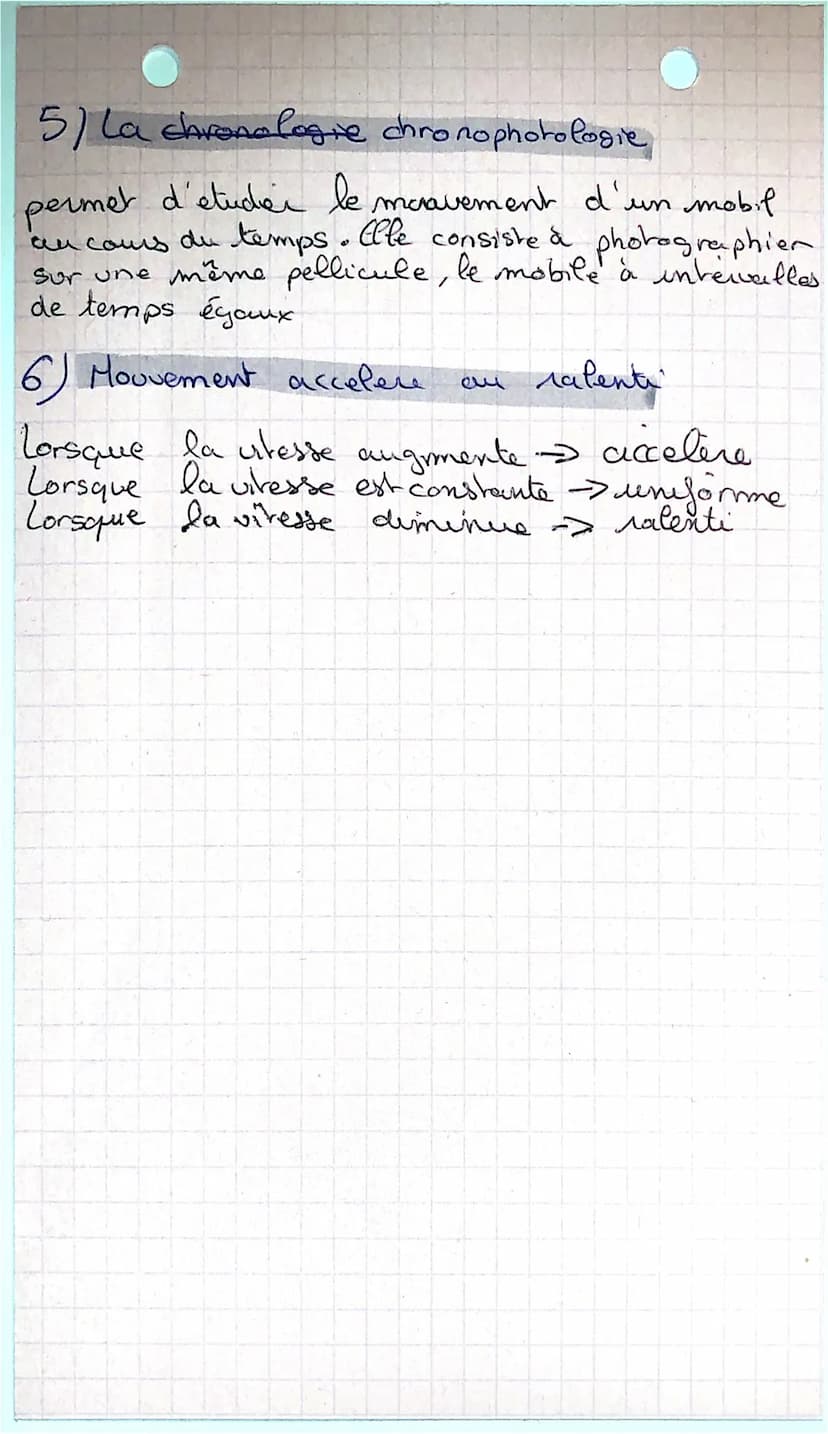 5) La chronologie chronophotologie
permet d'etudier le mouvement d'un mobil
au cours du temps. Elle consiste à photographier
sur une même pellicule, le mobile à intervalles
de temps égaux
6) Mouvement accelere ou ralenti
Lorsque la vitesse augmente -> accelère
Lorsque la vitesse est constante -> uniforme
Lorsque la vitesse diminue -> ralenti